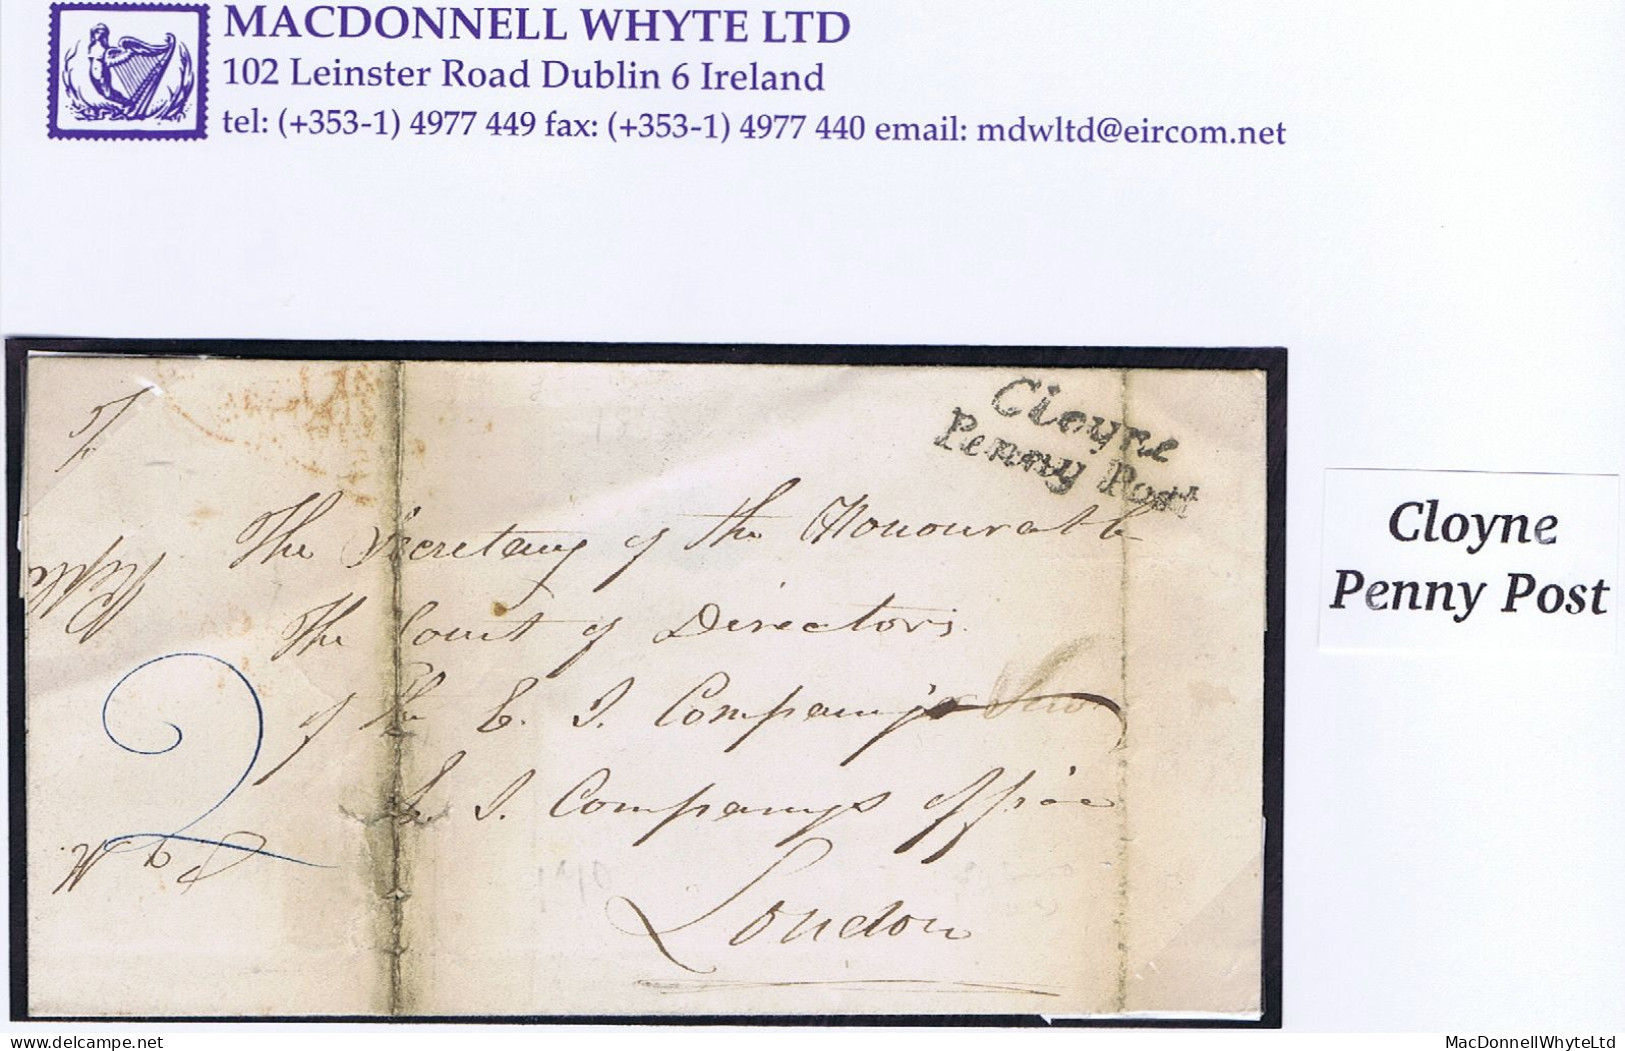 MACDONNELL WHYTE LTD
102 Leinster Road Dublin 6 Ireland
tel: (+353-1) 4977 449 fax: (+353-1) 4977 440 email: mdwltd@eircom.net
Cloyne
Penny Post
The Secretary of the Honourable
The Court of Directors
of the E. I. Company's
E. I. Company's Office
London
2
Cloyne
Penny Post
delcampe.net
MacDonnellWhyteLtd